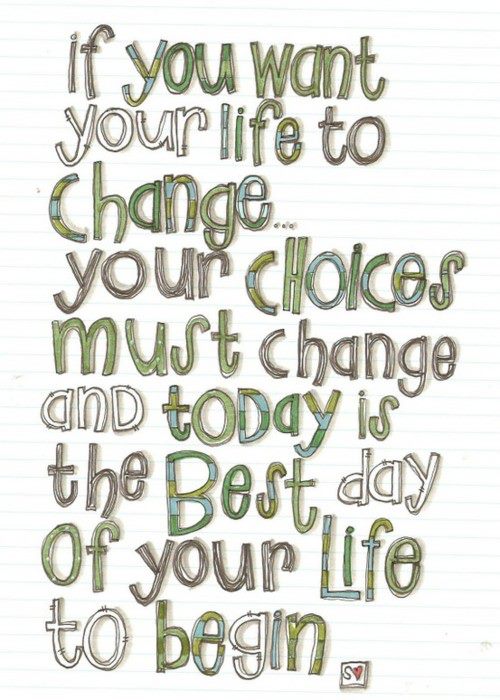 if you want
your life to
change...
your CHoices
must change
anD toDay is
the Best day
Of your Life
to begin.
S♥